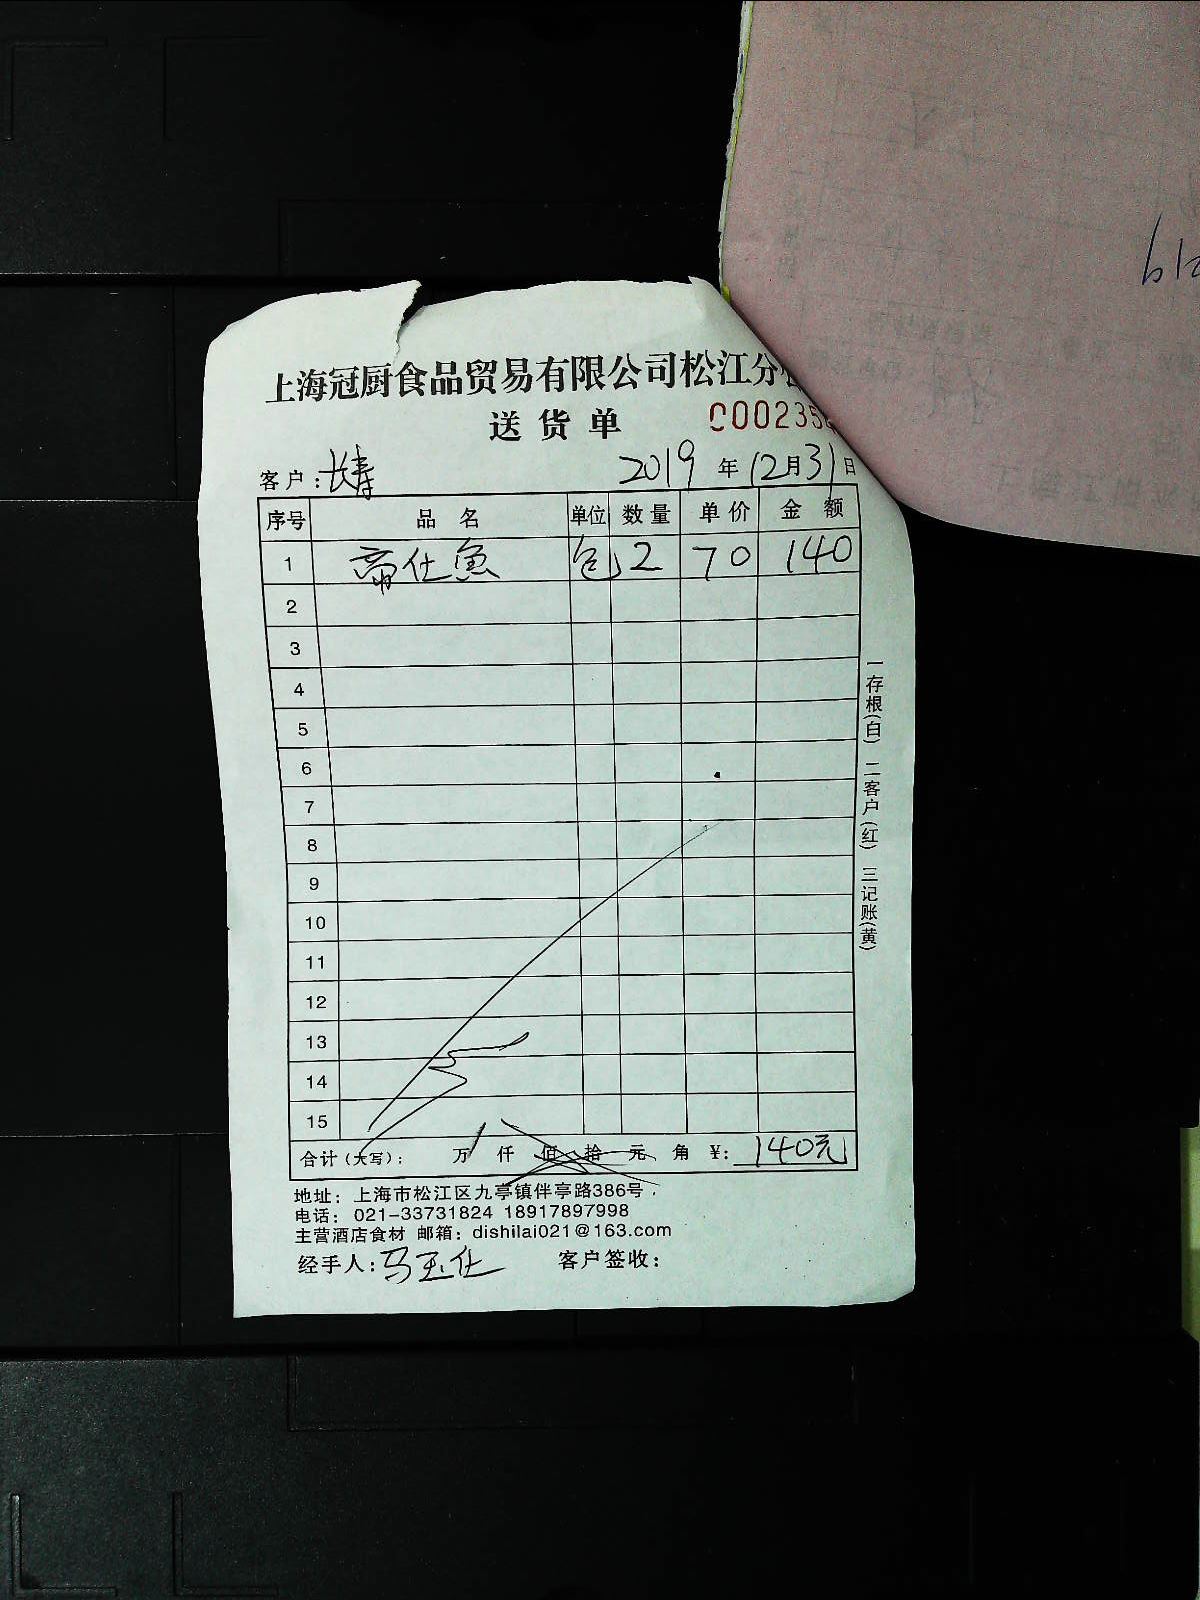 上海冠厨食品贸易有限公司松江分
送货单 000235
客户:长寿 2019年12月31日
序号 品名 单位 数量 单价 金额
1 帝仕鱼 包 2 70 140
2
3
4
5
6
7
8
9
10
11
12
13
14
15
合计(大写): 万 仟 佰 拾 元 角 ¥:140元
地址:上海市松江区九亭镇伴亭路386号
电话:021-33731824 18917897998
主营酒店食材 邮箱:dishilai021@163.com
经手人:马玉仕 客户签收:
一存根(白) 二客户(红) 三记账(黄)